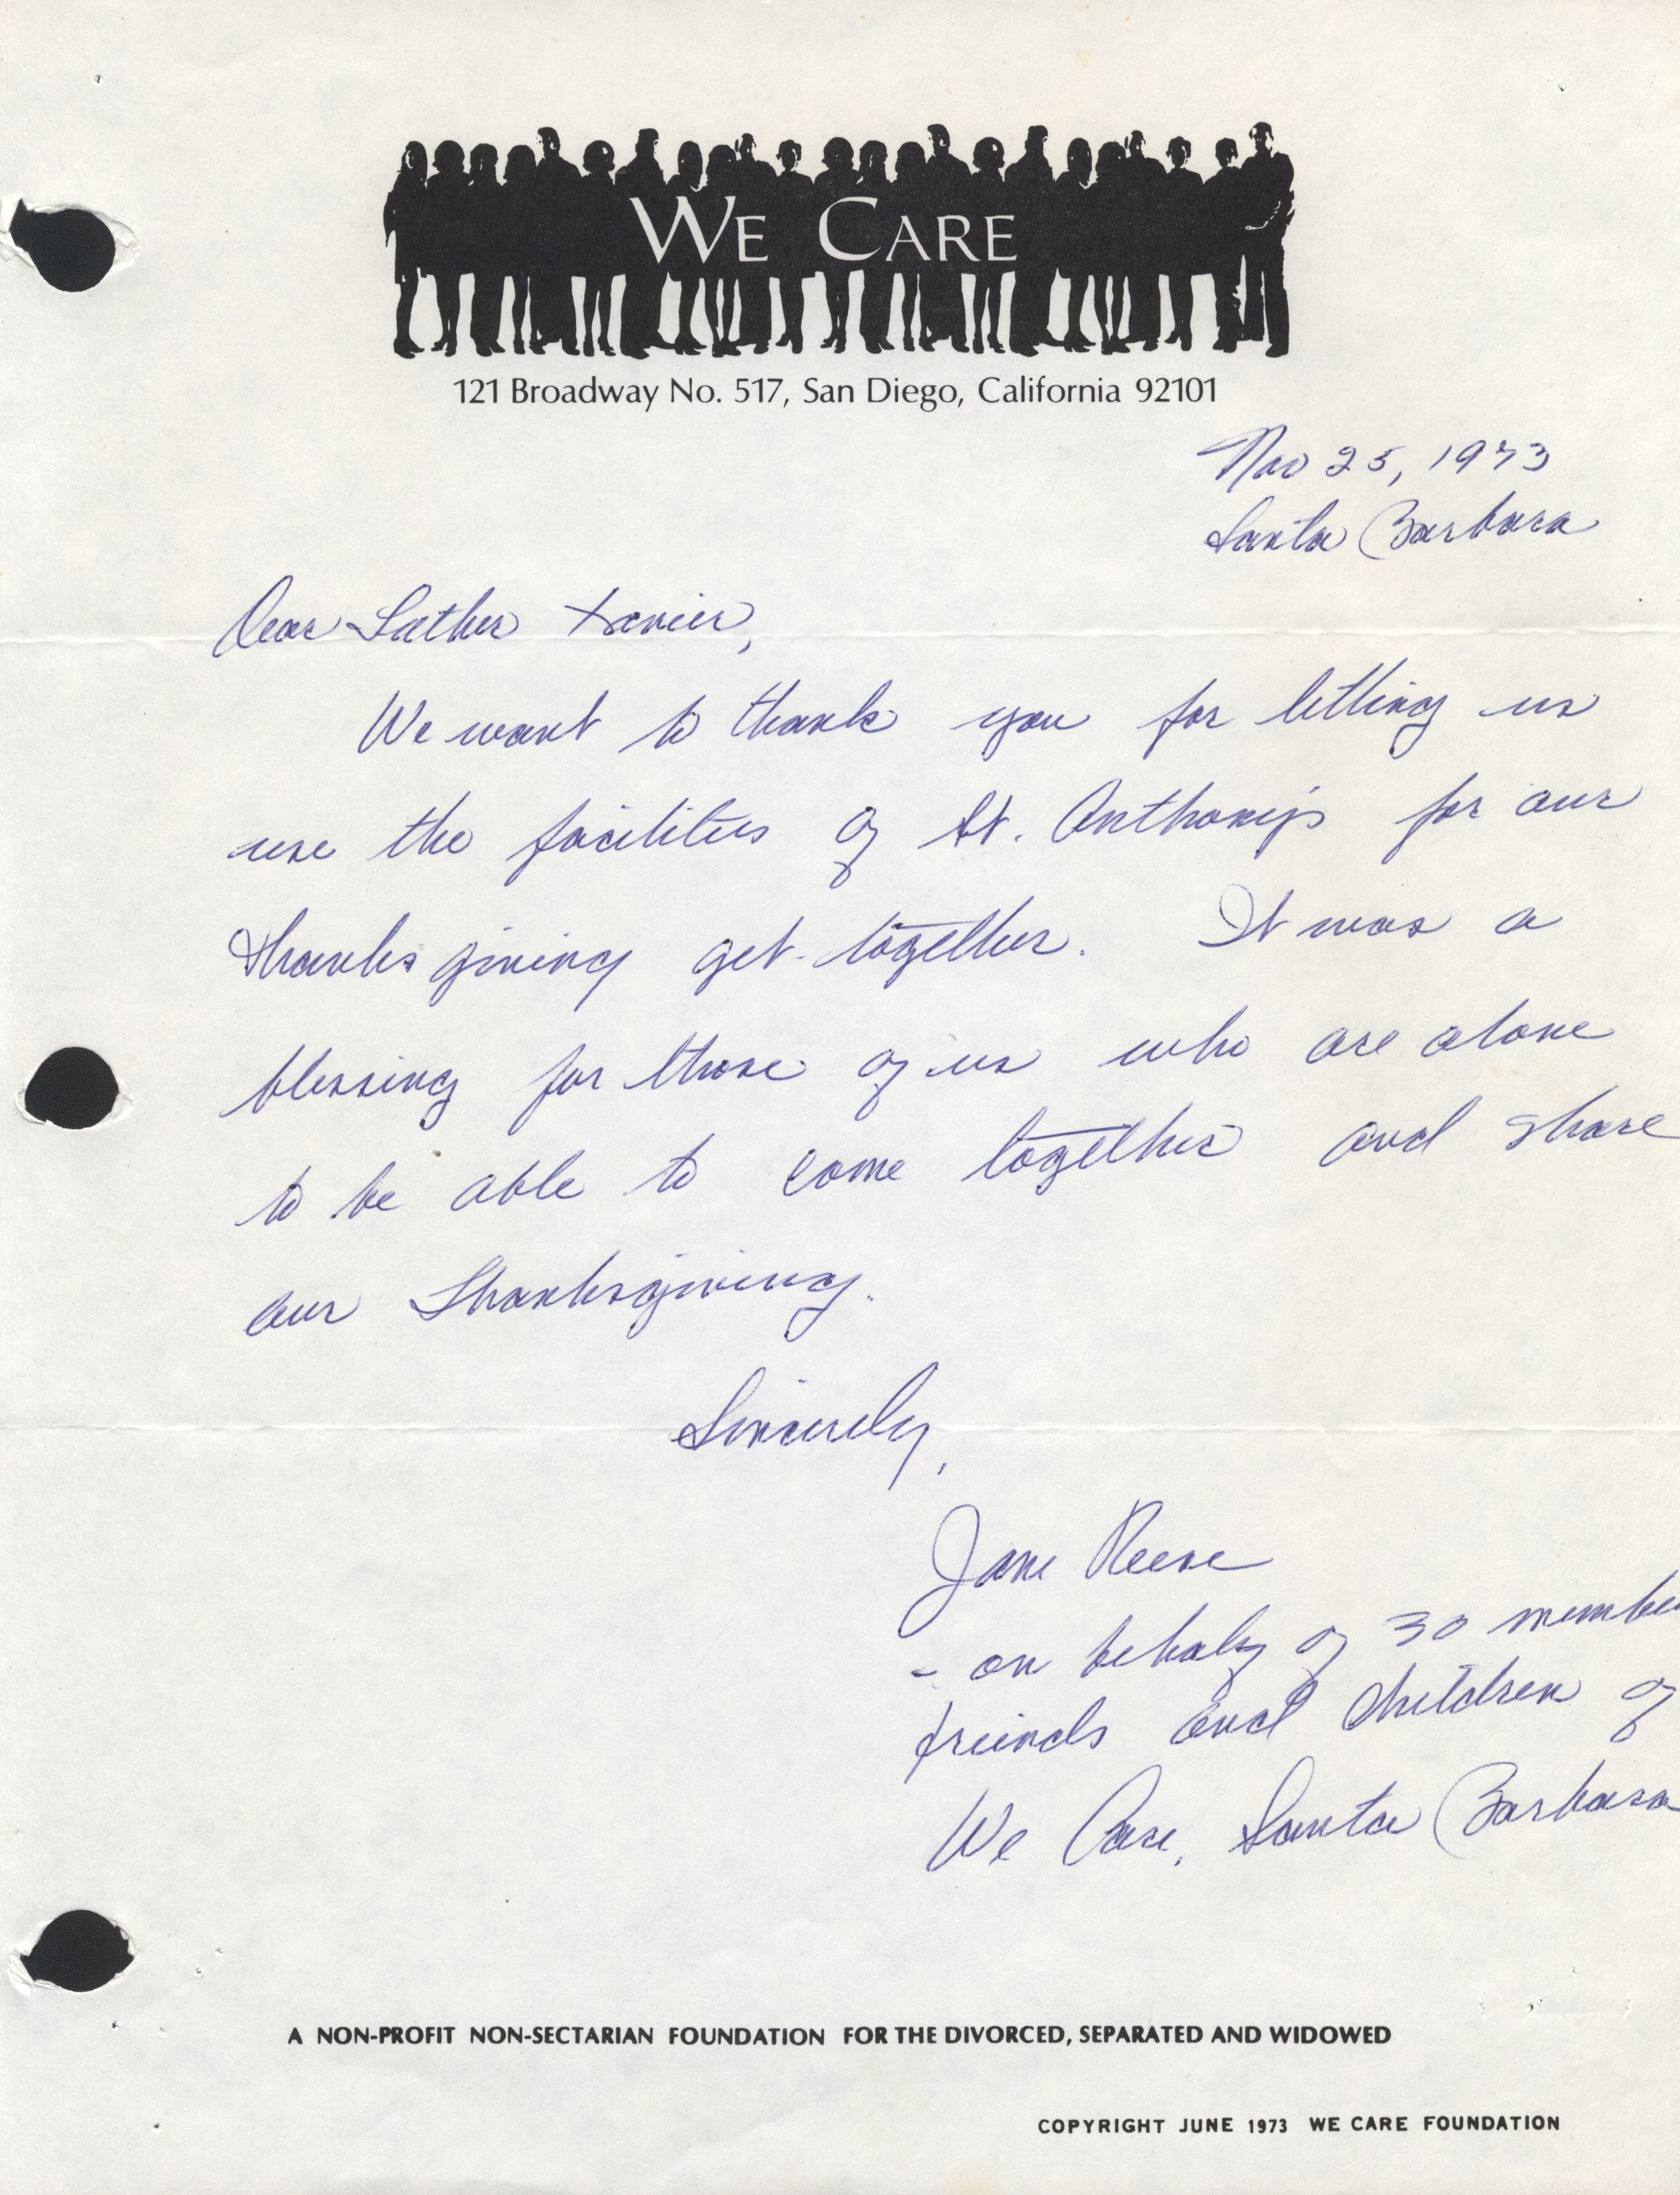 WE CARE
121 Broadway No. 517, San Diego, California 92101
Nov 25, 1973
Santa Barbara
Dear Father Xavier,
We want to thank you for letting us
use the facilities of St. Anthony's for our
thanksgiving get-together. It was a
blessing for those of us who are alone
to be able to come together and share
our Thanksgiving.
Sincerely,
Jane Reese
- on behalf of 30 membe
friends and children of
We Care, Santa Barbara
A NON-PROFIT NON-SECTARIAN FOUNDATION FOR THE DIVORCED, SEPARATED AND WIDOWED
COPYRIGHT JUNE 1973 WE CARE FOUNDATION